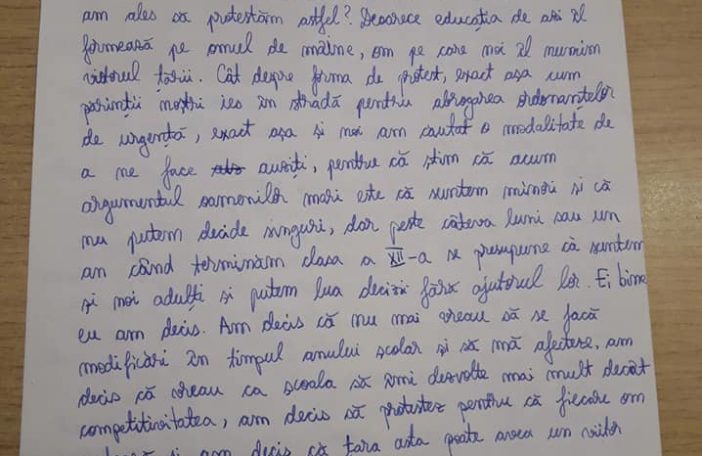 am ales să protestăm astfel? Deoarece educația de azi îl
formează pe omul de mâine, om pe care noi îl numim
viitorul țării. Cât despre forma de protest, exact așa cum
părinții noștri ies în stradă pentru abrogarea ordonanțelor
de urgență, exact așa și noi am cautat o modalitate de
a ne face auziți, pentru că știm că acum
argumentul oamenilor mari este că suntem minori și că
nu putem decide singuri, dar peste câteva luni sau un
an când terminăm clasa a XII-a se presupune că suntem
și noi adulți si putem lua decizii fără ajutorul lor. Ei bine
eu am decis. Am decis că nu mai vreau să se facă
modificări în timpul anului școlar și să mă afecteze, am
decis că vreau ca școala să îmi dezvolte mai mult decât
competitivitatea, am decis să protestez pentru că fiecare om
și am decis că țara asta poate avea un viitor